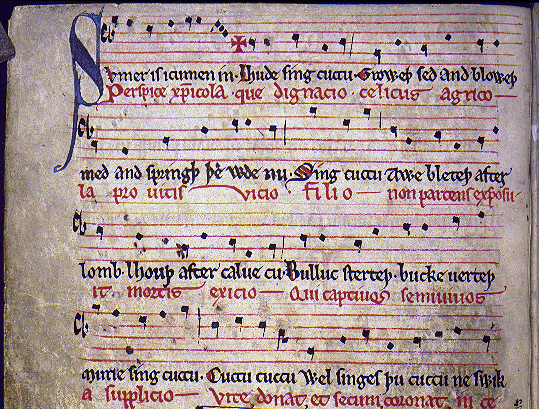 Svmer is icumen in· Lhude sing cuccu· Groweþ sed and bloweþ
Perspice xp̄icola· que dignacio· celicus agrico—
med and springþ þe wde nu· Sing cuccu Awe bleteþ after
la pro uitis vicio filio— non parcens exposu-
lomb· lhouþ after calue cu· Bulluc sterteþ· bucke uerteþ
it mortis exicio— Qui captiuos semiuiuos
murie sing cuccu· Cuccu cuccu Wel singes þu cuccu ne swik
a supplicio— Vite donat et secum coronat in ce